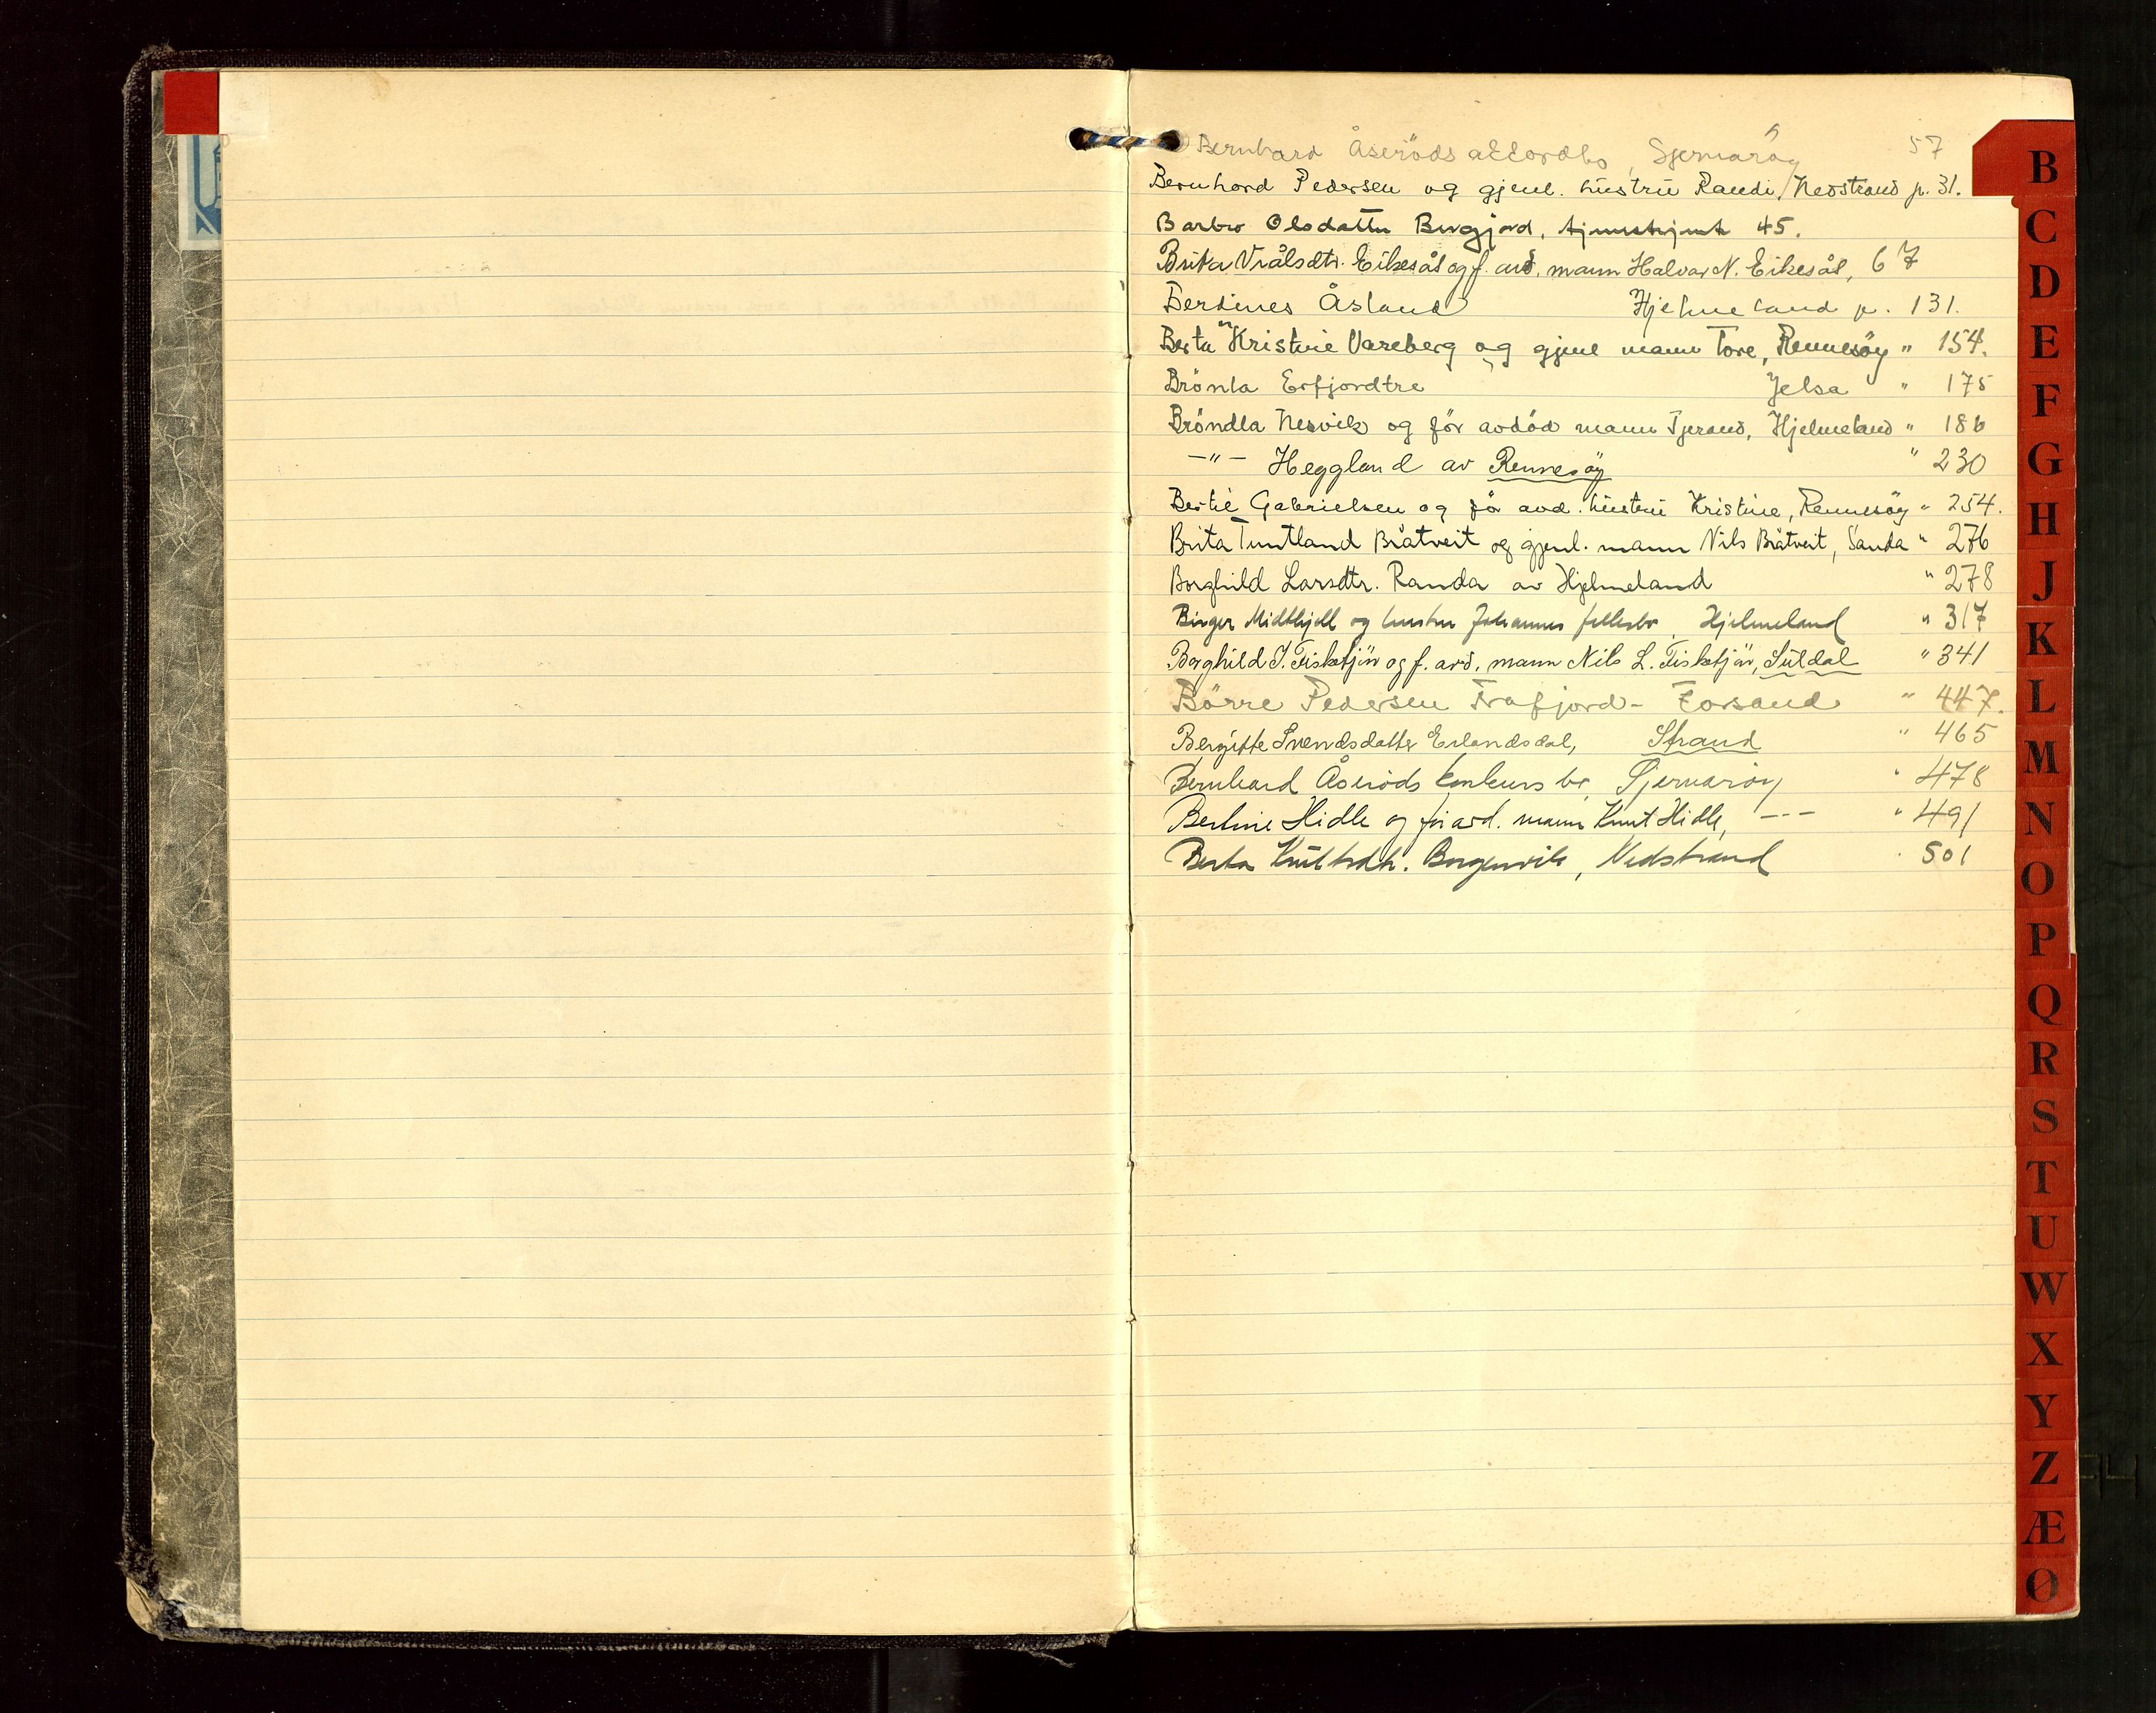 Bernhard Åseröds akkordbo, Sjernaröy 57
Bernhard Pedersen og gjenl. hustru Randi, Nedstrand p. 31.
Barbro Olsdatter Bergjord, 45.
Brita Vrålsdtr. Eikesål og f. avd. mann Halvar N. Eikesål, 67
Berdines Åsland Hjelmeland p. 131.
Berta Kristine Vareberg og gjenl mann Tore, Rennesöy " 154.
Brönla Erfjordtre Jelsa " 175
Bröndla Nesvik og för avdöd mann Tjerand, Hjelmeland " 186
-"- Heggland av Rennesöy " 230
Bertie Gabrielsen og för avd. hustru Kristine, Rennesöy " 254.
Brita Tuntland Bråtveit og gjenl. mann Nils Bråtveit, Sauda " 276
Borghild Larsdtr. Randa av Hjelmeland " 278
Birger Midtfjell og hustru Johannes fellesbo, Hjelmeland " 317
Borghild J. Fisketjön og f. avd. mann Nils L. Fisketjön, Suldal " 341
Börre Pedersen Frafjord - Forsand " 447.
Bergitte Svendsdatter Erlandsdal, Strand " 465
Bernhard Åseröds konkurs bo, Sjernaröy " 478
Bertine Hidle og för avd. mann Knut Hidle, --- " 491
Berta Knutsdtr. Borgenvik, Nedstrand " 501
B
C
D
E
F
G
H
J
K
L
M
N
O
P
Q
R
S
T
U
W
X
Y
Z
Æ
Ø